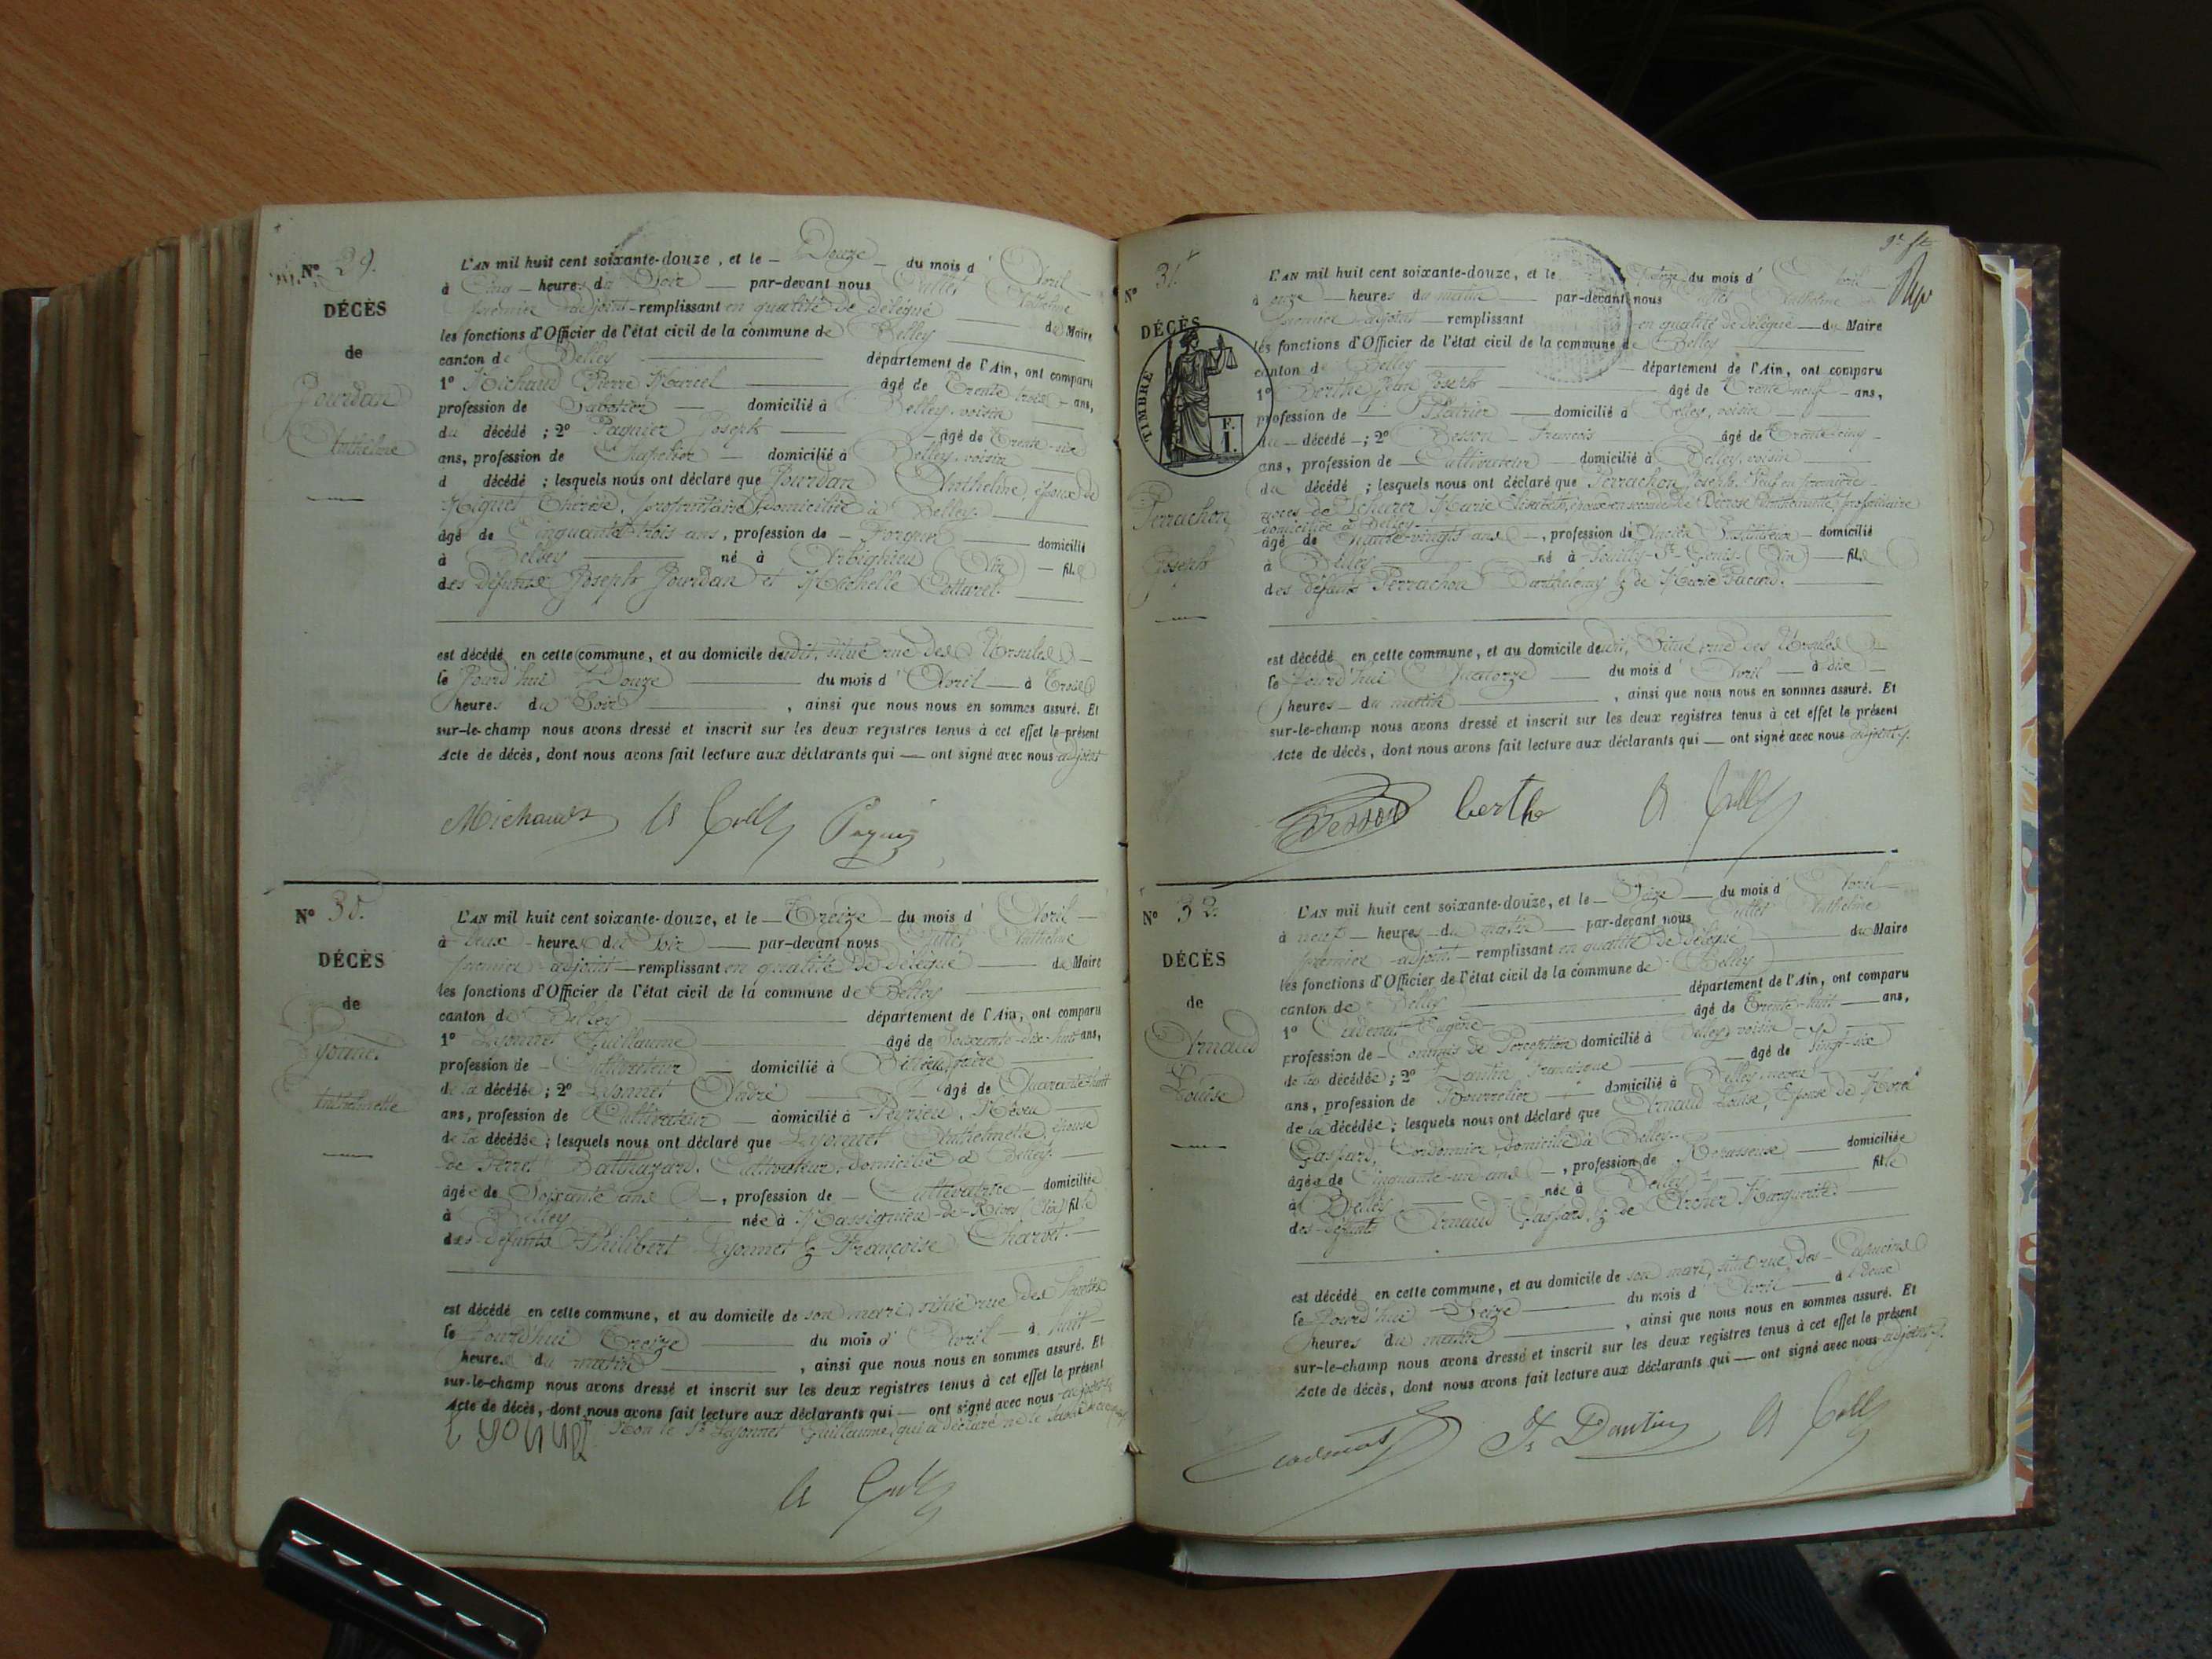 N° 29.
DÉCÈS
de
Jourdan
Anthelme
L'AN mil huit cent soixante-douze, et le Douze du mois d'Avril
à Cinq heures du Soir par-devant nous Anthelme
premier adjoint remplissant en qualité de délégué du Maire
les fonctions d'Officier de l'état civil de la commune de Belley
canton de Belley département de l'Ain, ont comparu
1° Michaud Pierre Marcel âgé de Trente trois ans,
profession de Sabotier domicilié à Belley, voisin
du décédé ; 2° Joseph âgé de Trente-six
ans, profession de Chapelier domicilié à Belley, voisin
d décédé ; lesquels nous ont déclaré que Jourdan Anthelme, époux de
Miguet Thérèse, propriétaire, domicilié à Belley.
âgé de Cinquante-trois ans, profession de domicilié
à Belley né à Arbignieu (Ain) fils
des défunts Joseph Jourdan et Michelle Cottaret.
est décédé en cette commune, et au domicile dudit, situé rue des Ursules
le Jourd'hui Douze du mois d'Avril à Trois
heures du Soir, ainsi que nous nous en sommes assuré. Et
sur-le-champ nous avons dressé et inscrit sur les deux registres tenus à cet effet le présent
Acte de décès, dont nous avons fait lecture aux déclarants qui — ont signé avec nous adjoint
Michaud
N° 30.
DÉCÈS
de
Lyonnet
Anthelmette
L'AN mil huit cent soixante-douze, et le Treize du mois d'Avril
à Deux heures du Soir par-devant nous Anthelme
premier adjoint remplissant en qualité de délégué du Maire
les fonctions d'Officier de l'état civil de la commune de Belley
canton de Belley département de l'Ain, ont comparu
1° Lyonnet Guillaume âgé de Soixante-dix-huit ans,
profession de Cultivateur domicilié à frère
de la décédée ; 2° Lyonnet André âgé de Quarante-huit
ans, profession de Cultivateur domicilié à Peyrieu, Neveu
de la décédée ; lesquels nous ont déclaré que Lyonnet Anthelmette, épouse
de Perret Balthazard, Cultivateur, domicilié à Belley.
âgée de Soixante ans, profession de Cultivatrice domiciliée
à Belley née à Massignieu-de-Rives (Ain) fille
des défunts Philibert Lyonnet & Françoise Charvet.
est décédé en cette commune, et au domicile de son mari, situé rue des
le Jourd'hui Treize du mois d'Avril à huit
heures du matin, ainsi que nous nous en sommes assuré. Et
sur-le-champ nous avons dressé et inscrit sur les deux registres tenus à cet effet le présent
Acte de décès, dont nous avons fait lecture aux déclarants qui — ont signé avec nous adjoint
Non le Sr Lyonnet Guillaume, qui a déclaré ne le
Lyonnet
N° 31.
DÉCÈS
TIMBRE
F.
1.
Perrachon
Joseph
L'AN mil huit cent soixante-douze, et le du mois d'Avril
à onze heures du matin par-devant nous Anthelme
premier adjoint remplissant en qualité de délégué du Maire
les fonctions d'Officier de l'état civil de la commune de Belley
canton de Belley département de l'Ain, ont comparu
1° Berthe Joseph âgé de Trente-neuf ans,
profession de Plâtrier domicilié à Belley, voisin
du décédé ; 2° Besson François âgé de Trente-cinq
ans, profession de Cultivateur domicilié à Belley, voisin
du décédé ; lesquels nous ont déclaré que Perrachon Joseph, Veuf en premières
noces de Marie Elisabeth, époux en secondes de propriétaire
domiciliée à Belley.
âgé de Quatre-vingts ans, profession d'Ancien Instituteur domicilié
à Belley né à Pouilly-St-Genis (Ain) fils
des défunts Perrachon Barthelemy & de Marie
est décédé en cette commune, et au domicile dudit, Situé rue des Ursules
le Jourd'hui Quatorze du mois d'Avril à dix
heures du matin, ainsi que nous nous en sommes assuré. Et
sur-le-champ nous avons dressé et inscrit sur les deux registres tenus à cet effet le présent
Acte de décès, dont nous avons fait lecture aux déclarants qui — ont signé avec nous adjoint
Besson berthe
N° 32.
DÉCÈS
de
Arnaud
Louise
L'AN mil huit cent soixante-douze, et le Seize du mois d'Avril
à neuf heures du matin par-devant nous Anthelme
premier adjoint remplissant en qualité de délégué du Maire
les fonctions d'Officier de l'état civil de la commune de Belley
canton de Belley département de l'Ain, ont comparu
1° Eugène âgé de Trente-huit ans,
profession de Commis de Perception domicilié à Belley, voisin
de la décédée ; 2° Dantin Françoise âgé de Vingt-six
ans, profession de Bourrelier domicilié à Belley, neveu
de la décédée ; lesquels nous ont déclaré que Arnaud Louise, Epouse de
Gaspard, Cordonnier, domicilié à Belley.
âgée de Cinquante-un ans, profession de Repasseuse domiciliée
à Belley née à Belley fille
des défunts Arnaud Gaspard, & de Marguerite.
est décédé en cette commune, et au domicile de son mari, situé rue des Capucins
le Jourd'hui Seize du mois d'Avril à Deux
heures du matin, ainsi que nous nous en sommes assuré. Et
sur-le-champ nous avons dressé et inscrit sur les deux registres tenus à cet effet le présent
Acte de décès, dont nous avons fait lecture aux déclarants qui — ont signé avec nous adjoint
Dantin